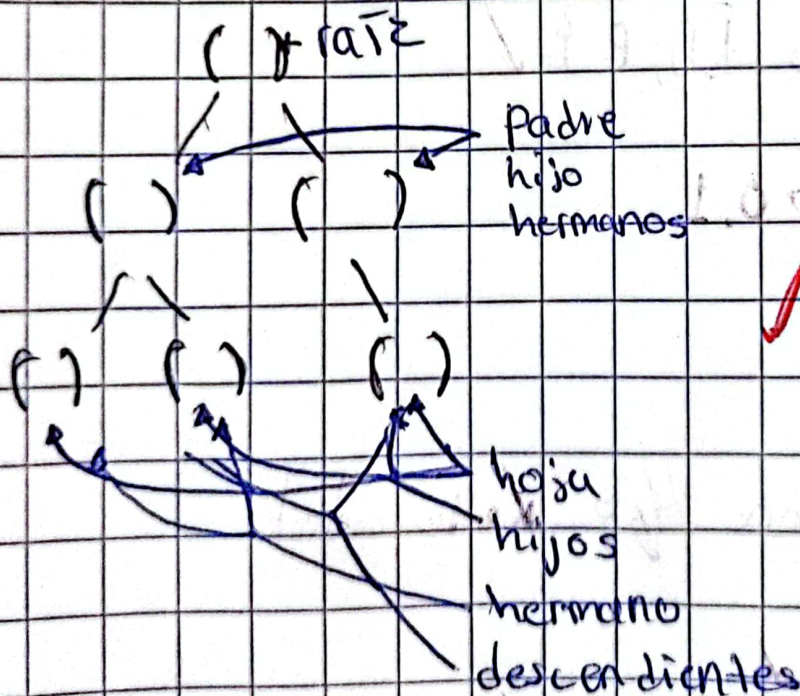 ( ) raíz
Padre
hijo
( ) ( )
hermanos
( ) ( ) ( )
hoja
hijos
hermano
descendientes